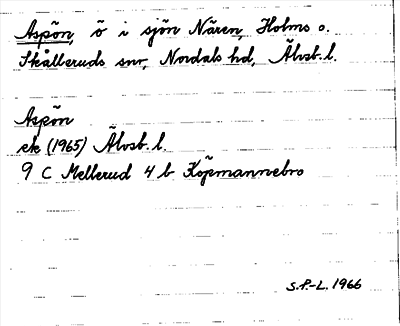 Aspön, ö i sjön Nären, Holms o.
Skålleruds snr, Nordals hd, Älvsb. l.
Aspön
ek (1965) Älvsb. l.
9 C Mellerud 4 b Köpmannebro
S.P.-L. 1966